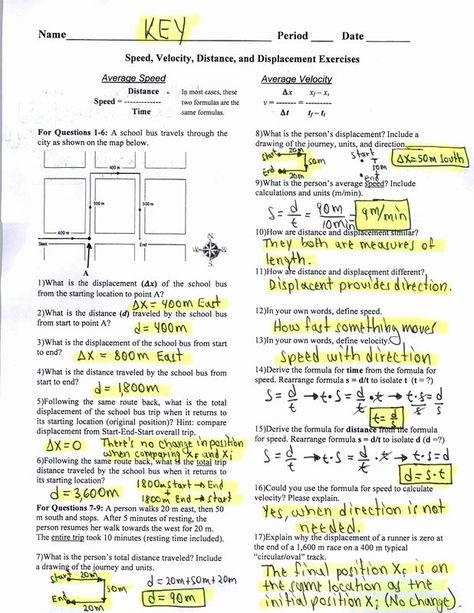 Name KEY Period Date
Speed, Velocity, Distance, and Displacement Exercises
Average Speed
Distance
Speed = ----------
Time
In most cases, these
two formulas are the
same formulas.
Average Velocity
Δx xf – xi
v = ------- = ----------
Δt tf – ti
For Questions 1-6: A school bus travels through the
city as shown on the map below.
400 m
300 m
500 m
400 m
Start
End
A
1)What is the displacement (Δx) of the school bus
from the starting location to point A?
Δx = 400m East
2)What is the distance (d) traveled by the school bus
from start to point A?
d = 400m
3)What is the displacement of the school bus from start
to end? Δx = 800m East
4)What is the distance traveled by the school bus from
start to end?
d = 1,800m
5)Following the same route back, what is the total
displacement of the school bus trip when it returns to
its starting location (original position)? Hint: compare
displacement from Start-End-Start overall trip.
Δx = 0 There's no change in position
when comparing xf and xi
6)Following the same route back, what is the total
distance traveled by the school bus when it returns to
its starting location?
d = 3,600m
1800m start → End
1800m End → start
For Questions 7-9: A person walks 20 m east, then 50
m south and stops. After 5 minutes of resting, the
person resumes her walk towards the west for 20 m.
The entire trip took 10 minutes (resting time included).
7)What is the person's total distance traveled? Include
a drawing of the journey and units.
start 20m
50m
End 20m
d = 20m+50m+20m
d = 90m
8)What is the person's displacement? Include a
drawing of the journey, units, and direction.
start 20m
50m
End 20m
start
50m
end
Δx = 50m South
9)What is the person's average speed? Include
calculations and units (m/min).
S = d/t = 90m/10min = 9m/min
10)How are distance and displacement similar?
They both are measures of
length.
11)How are distance and displacement different?
Displacent provides direction.
12)In your own words, define speed.
How fast something moves
13)In your own words, define velocity.
Speed with direction
14)Derive the formula for time from the formula for
speed. Rearrange formula s = d/t to isolate t (t = ?)
S = d/t → t·S = d/t·t → t·s/s = d/s
t = d/s
15)Derive the formula for distance from the formula
for speed. Rearrange formula s = d/t to isolate d (d =?)
S = d/t → t·S = d/t·t → t·s = d
d = s·t
16)Could you use the formula for speed to calculate
velocity? Please explain.
Yes, when direction is not
needed.
17)Explain why the displacement of a runner is zero at
the end of a 1,600 m race on a 400 m typical
"circular/oval" track.
The final position xf is on
the same location as the
initial position xi (No change)